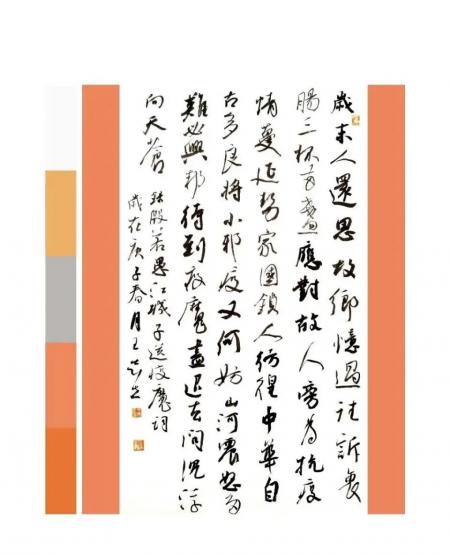 歲末人還思故鄉憶過往訴衷
腸三杯盡應對故人旁為抗疫
情蔓延勢家國鎖人彷徨中華自
古多良將小邪疫又何妨山河震怒多
難必興邦待到疫魔盡退去問沉浮
向天蒼
殷若愚江城子送疫魔詞
歲在庚子春月王